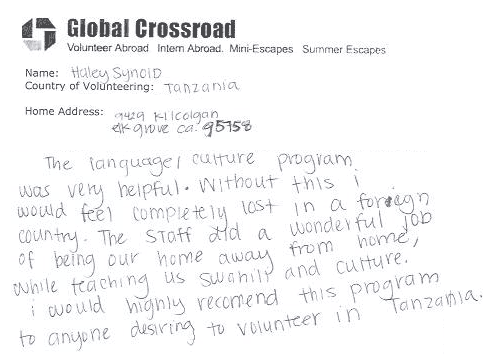 Global Crossroad
Volunteer Abroad Intern Abroad. Mini-Escapes Summer Escapes
Name: Haley Synoid
Country of Volunteering: Tanzania
Home Address: 9429 Kilcolgan
elk grove ca. 95758
The language/culture program
was very helpful. Without this i
would feel completely lost in a foreign
country. The staff did a wonderful job
of being our home away from home,
while teaching us swahili and culture.
i would highly recomend this program
to anyone desiring to volunteer in Tanzania.